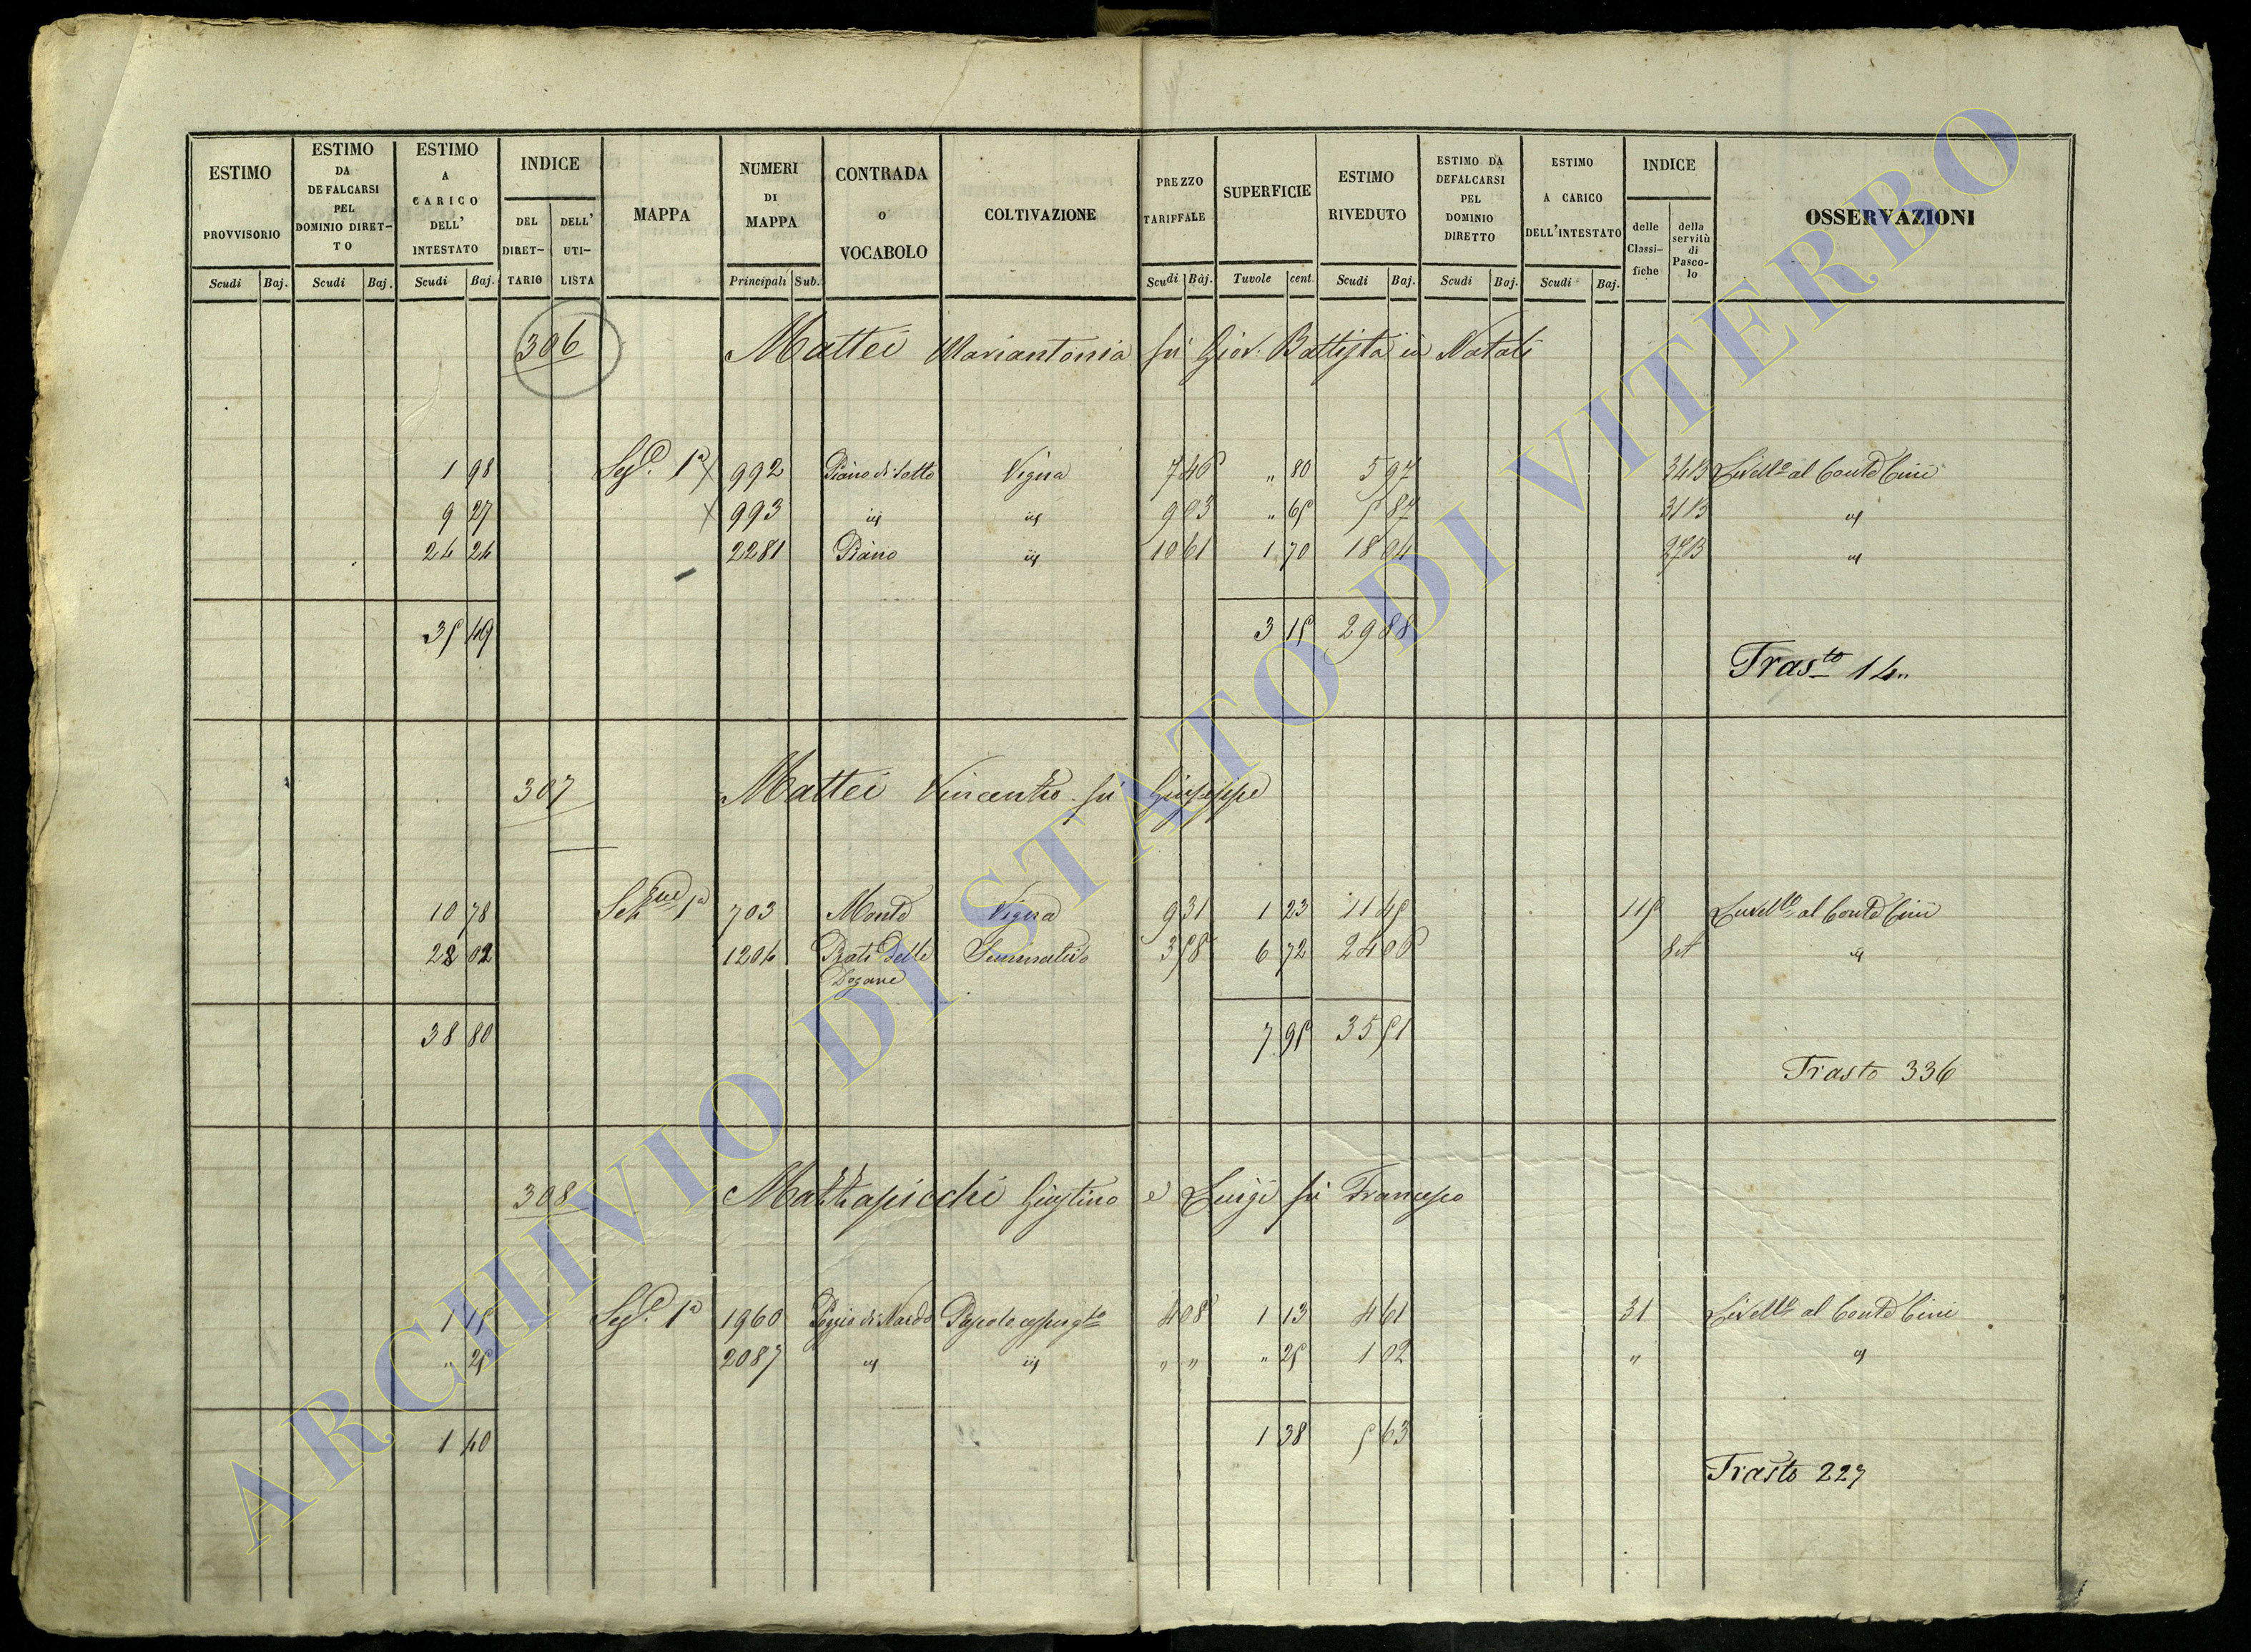 ESTIMO PROVVISORIO
ESTIMO DA DEFALCARSI PEL DOMINIO DIRET-TO
ESTIMO A CARICO DELL' INTESTATO
INDICE
DEL DIRET-TARIO
DELL' UTI-LISTA
MAPPA
NUMERI DI MAPPA
CONTRADA o VOCABOLO
COLTIVAZIONE
PREZZO TARIFFALE
SUPERFICIE
ESTIMO RIVEDUTO
ESTIMO DA DEFALCARSI PEL DOMINIO DIRETTO
ESTIMO A CARICO DELL'INTESTATO
INDICE
delle Classi-fiche
della servitù di Pasco-lo
OSSERVAZIONI
Scudi Baj. Scudi Baj. Scudi Baj. Principali Sub. Scudi Baj. Tavole cent. Scudi Baj. Scudi Baj. Scudi Baj.
306 Mattei Mariantonia fu Giov. Battista in Natali
1 98 Sez.e 1a 992 Piano di Sotto Vigna 7 46 " 80 5 97 34B Livell.o al Conte Cini
9 27 993 id 9 03 " 65 5 87 31B id
24 24 2281 Piano id 10 61 1 70 18 04 27B id
35 49 3 15 29 88
Tras.to 14
307 Mattei Vincenzo fu Giuseppe
10 78 Sezne 1a 703 Monte Vigna 9 31 1 23 11 45 115 Livell.o al Conte Cini
28 02 1204 Prati delle Dogane Seminativo 3 58 6 72 24 06 8A id
38 80 7 95 35 51
Trasto 336
308 Mattapicchi Giustino e Luigi fu Francesco
1 15 Sez.e 1a 1960 Poggio di Nardo Pascolo cespugto 4 08 1 13 4 61 31 Livello al Conte Cini
" 25 2087 id id " " " 25 1 02 " id
1 40 1 38 5 63
Trasto 227
ARCHIVIO DI STATO DI VITERBO